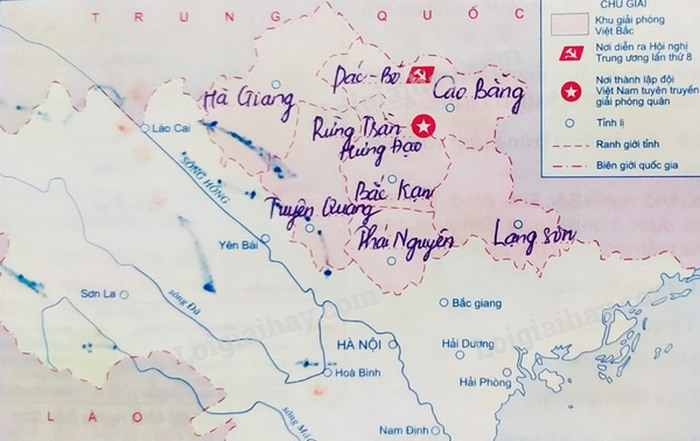 CHÚ GIẢI
Khu giải phóng
Việt Bắc
Nơi diễn ra Hội nghị
Trung ương lần thứ 8
Nơi thành lập đội
Việt Nam tuyên truyền
giải phóng quân
Tỉnh lị
Ranh giới tỉnh
Biên giới quốc gia
TRUNG QUỐC
Pác-Bó
Cao Bằng
Hà Giang
Lào Cai
Rừng Trần
Hưng Đạo
SÔNG HỒNG
Bắc Kạn
Tuyên Quang
Thái Nguyên
Lạng Sơn
Yên Bái
Sơn La
sông Đà
Bắc giang
HÀ NỘI
Hải Dương
Hoà Bình
Hải Phòng
LÀO
sông Mã
Nam Định
Loigiaihay.com
Loigiaihay.com